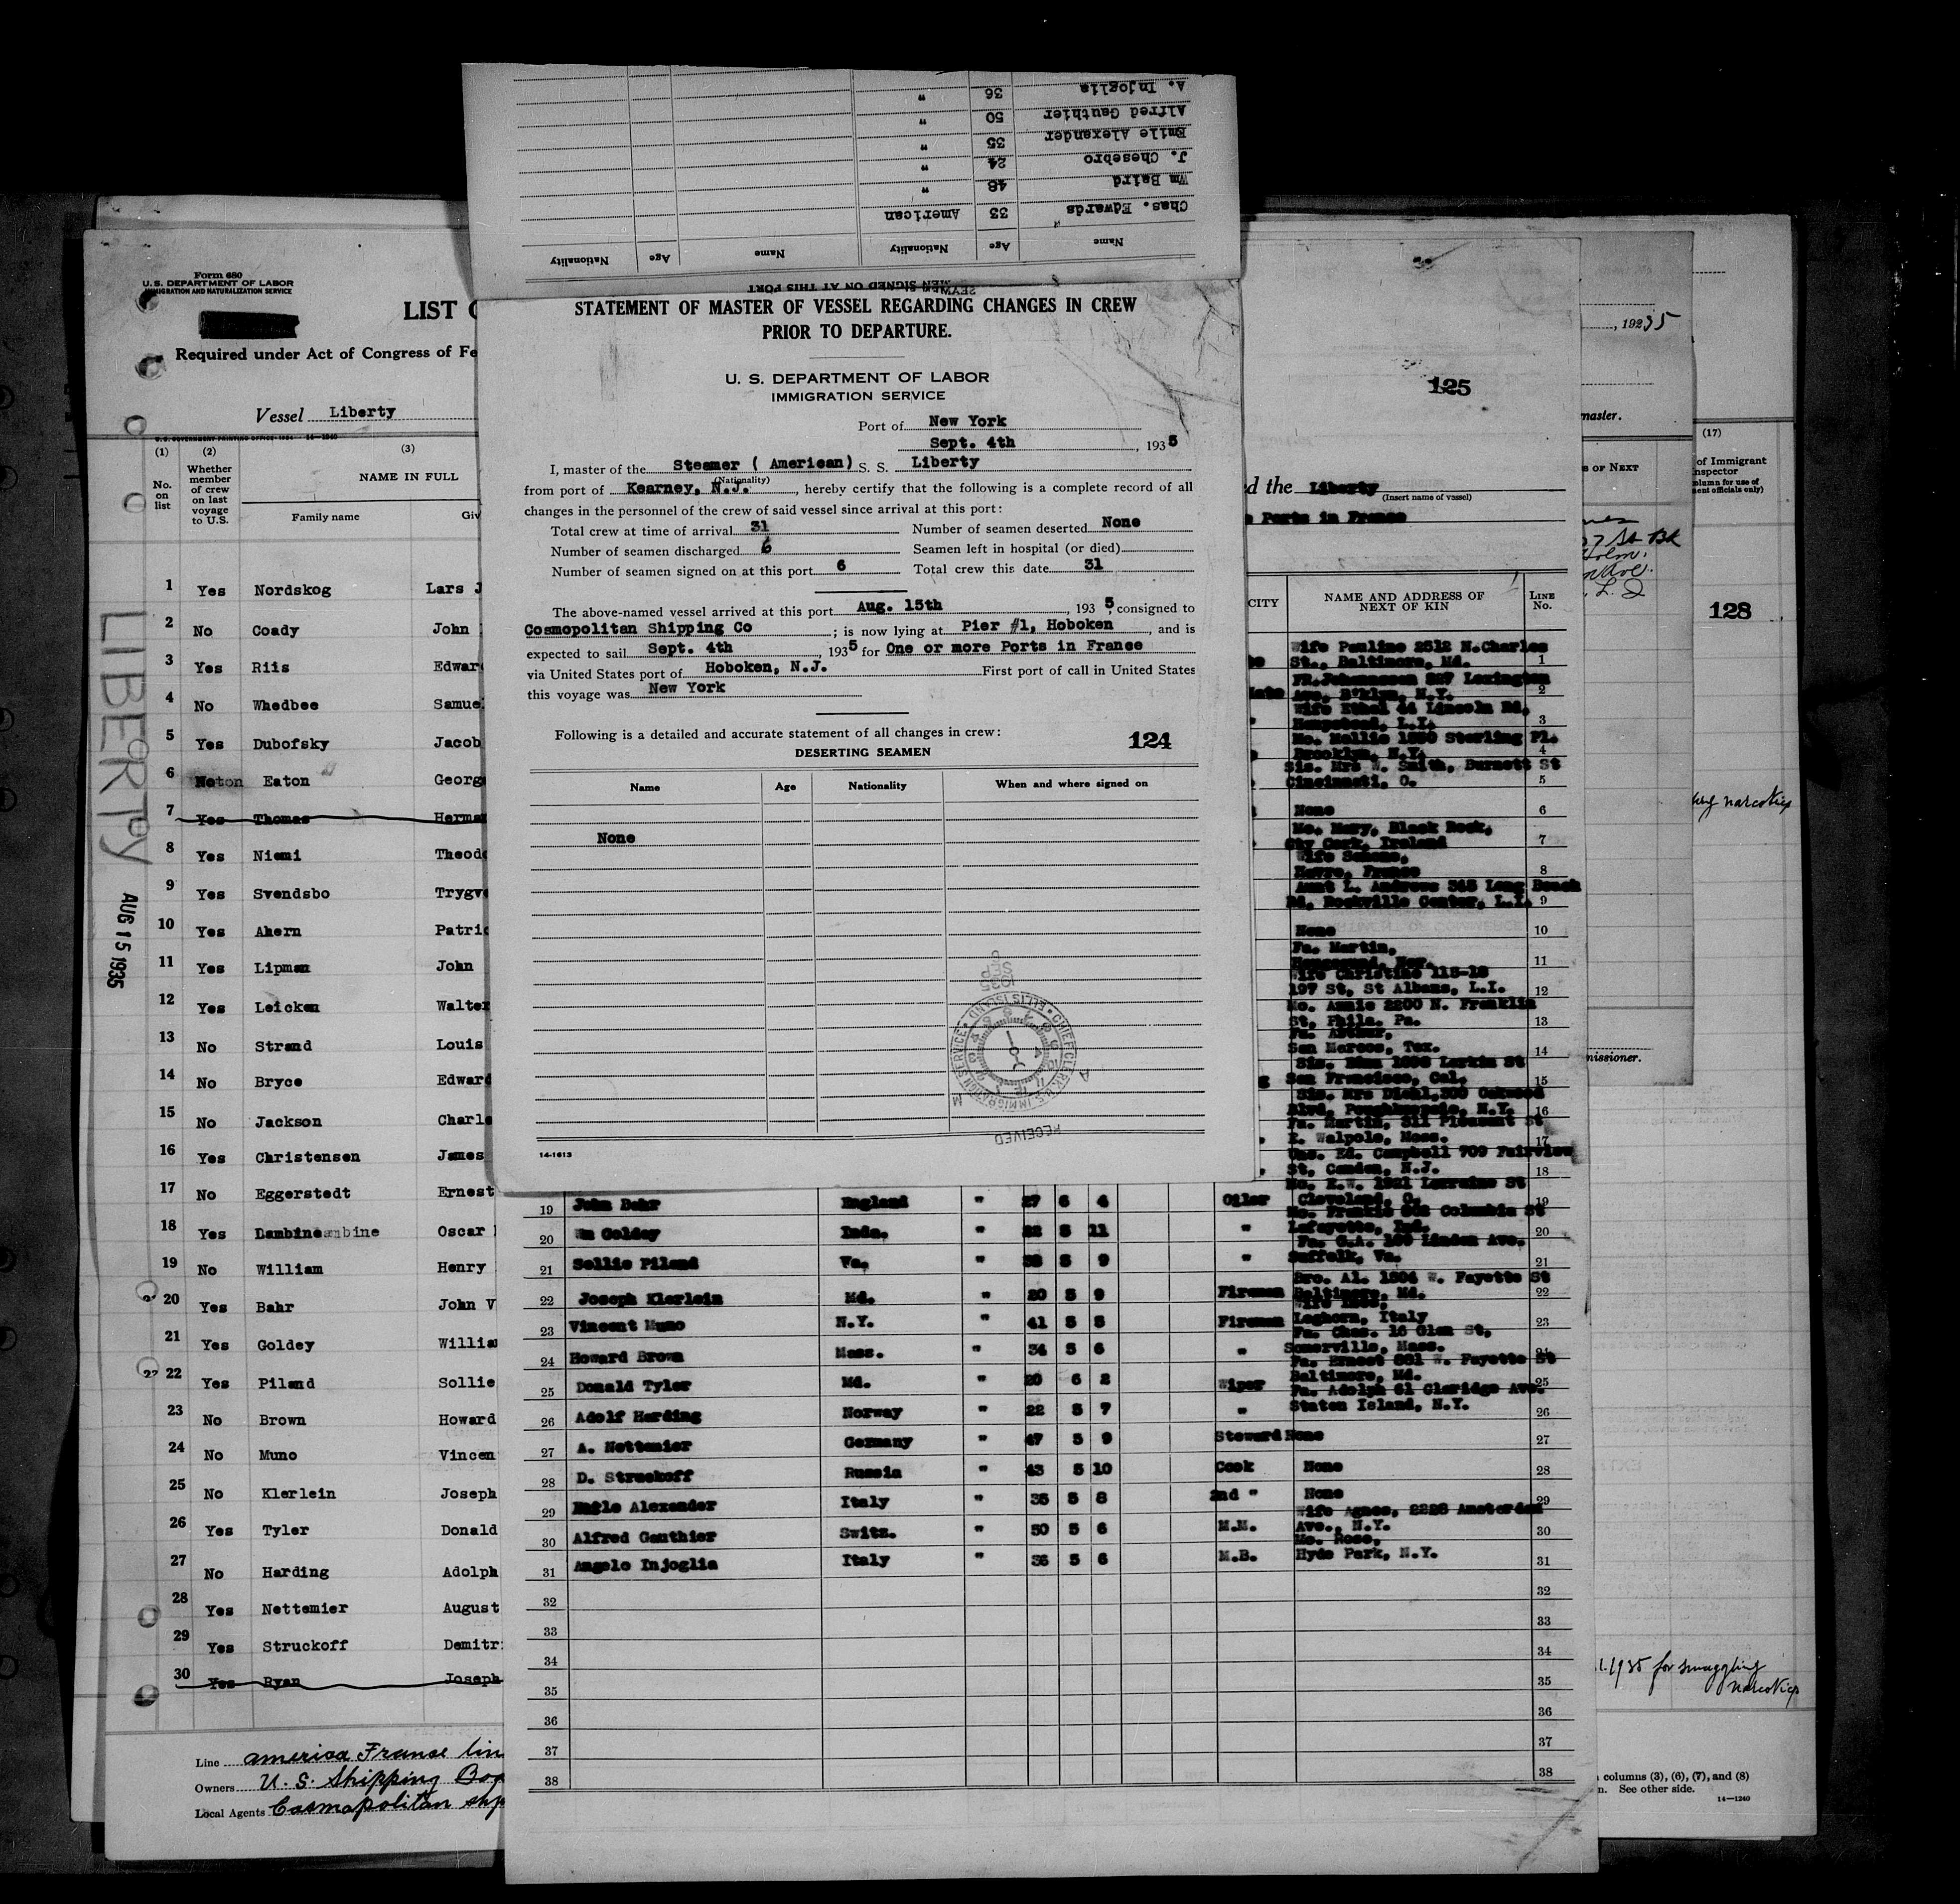 A. Injoglia 36 "
Alfred Gauthier 50 "
Emile Alexander 35 "
J. Chesebro 24 "
Wm Baird 48 "
Chas. Edwards 33 American
Name Age Nationality Name Age Nationality
SEAMEN SIGNED ON AT THIS PORT
STATEMENT OF MASTER OF VESSEL REGARDING CHANGES IN CREW
PRIOR TO DEPARTURE.
U. S. DEPARTMENT OF LABOR
IMMIGRATION SERVICE
Port of New York
Sept. 4th, 1935
I, master of the Steamer ( American) S. S. Liberty
(Nationality)
from port of Kearney, N.J., hereby certify that the following is a complete record of all
changes in the personnel of the crew of said vessel since arrival at this port:
Total crew at time of arrival 31 Number of seamen deserted None
Number of seamen discharged 6 Seamen left in hospital (or died)
Number of seamen signed on at this port 6 Total crew this date 31
The above-named vessel arrived at this port Aug. 15th, 1935, consigned to
Cosmopolitan Shipping Co; is now lying at Pier #1, Hoboken, and is
expected to sail Sept. 4th, 1935 for One or more Ports in France
via United States port of Hoboken, N.J. First port of call in United States
this voyage was New York
Following is a detailed and accurate statement of all changes in crew:
124
DESERTING SEAMEN
Name Age Nationality When and where signed on
None
1935
SEP
CHIEF CLERK U.S. IMMIGRATION SERVICE ELLIS ISLAND
RECEIVED
14-1613
Form 680
U. S. DEPARTMENT OF LABOR
IMMIGRATION AND NATURALIZATION SERVICE
LIST O
Required under Act of Congress of Fe
Vessel Liberty
U. S. GOVERNMENT PRINTING OFFICE: 1934 14-1240
(1) (2) (3)
No. on list
Whether member of crew on last voyage to U.S.
NAME IN FULL
Family name Giv
LIBERTY
AUG 15 1935
1 Yes Nordskog Lars J
2 No Coady John
3 Yes Riis Edward
4 No Whedbee Samue
5 Yes Dubofsky Jacob
6 Eaton Georg
7 Yes Thomas Herma
8 Yes Niemi Theodo
9 Yes Svendsbo Trygve
10 Yes Ahern Patric
11 Yes Lipman John
12 Yes Leicken Walter
13 No Strand Louis
14 No Bryce Edward
15 No Jackson Charle
16 Yes Christensen James
17 No Eggerstedt Ernest
18 Yes Dambine Oscar
19 No William Henry
20 Yes Bahr John V
21 Yes Goldey Willia
22 22 Yes Piland Sollie
23 No Brown Howard
24 No Muno Vincen
25 No Klerlein Joseph
26 Yes Tyler Donald
27 No Harding Adolph
28 Yes Nettemier August
29 Yes Struckoff Demitr
30 Yes Ryan Joseph
Line America France lin
Owners U. S. Shipping Boa
Local Agents Cosmopolitan shp
125
d the Liberty
(Insert name of vessel)
Ports in France
CITY NAME AND ADDRESS OF NEXT OF KIN LINE No.
Wife Pauline 2512 N.Charles
St., Baltimore, Md. 1
FR.Johannssen 327 Lexington
Ave. B'klyn, N.Y. 2
Wife Ethel 44 Lincoln Rd,
Hempstead, L.I. 3
Mo. Mollie 1350 Sterling Pl.
Brooklyn, N.Y. 4
Sis. Mrs W. Smith, Burnett St
Cincinnati, O. 5
None 6
Mo. Mary, Black Rock,
Cty Cork, Ireland 7
Wife
Havre, France 8
Aunt L. Andrews 348 Long Beach
Rd, Rockville Center, L.I. 9
None 10
Fa. Martin,
Nor. 11
Wife Christine 115-18
197 St, St Albans, L.I. 12
Mo. Annie 2200 N. Franklin
St, Phila. Pa. 13
Fa. Arthur,
San Marcos, Tex. 14
Sis. Larkin St
San Francisco, Cal. 15
Sis. Mrs Diehl, Oakwood
Blvd, Poughkeepsie, N.Y. 16
Fa. Martin, 311 Pleasant St
E. Walpole, Mass. 17
Unc. Ed. Campbell 709 Fairview
St, Camden, N.J. 18
Mo. E.W. 1921 Lorraine St
19 John Bahr England " 27 6 4 Oiler Cleveland, O. 19
Mo. Frankie Columbia St
20 Wm Goldey Inda. " 22 5 11 " Lafayette, Ind. 20
Fa. G.A. Linden Ave.
21 Sollie Piland Va. " 38 5 9 " Suffolk, Va. 21
Bro. Al. 1804 W. Fayette St
22 Joseph Klerlein Md. " 20 5 9 Fireman Baltimore, Md. 22
23 Vincent Muno N.Y. " 41 5 5 Fireman Leghorn, Italy 23
Fa. Chas. 16 Glen St,
24 Howard Brown Mass. " 34 5 6 " Somerville, Mass. 24
Fa. Ernest 881 W. Fayette St
25 Donald Tyler Md. " 20 6 2 Wiper Baltimore, Md. 25
Fa. Adolph 61 Claridge Ave.
26 Adolf Harding Norway " 22 5 7 " Staten Island, N.Y. 26
27 A. Nettemier Germany " 47 5 9 Steward None 27
28 D. Struckoff Russia " 43 5 10 Cook None 28
29 Emile Alexander Italy " 35 5 8 2nd " None 29
Wife Agnes, 2228 Amsterdam
30 Alfred Gauthier Switz. " 50 5 6 M.M. Ave., N.Y. 30
Mo. Rose,
31 Angelo Injoglia Italy " 36 5 6 M.B. Hyde Park, N.Y. 31
32 32
33 33
34 34
35 35
36 36
37 37
38 38
, 19235
master.
s OF NEXT
Holm.
missioner.
(17)
of Immigrant
nspector
olumn for use of
ment officials only)
128
narcotics
1.1935 for smuggling
narcotics
columns (3), (6), (7), and (8)
n. See other side.
14-1240